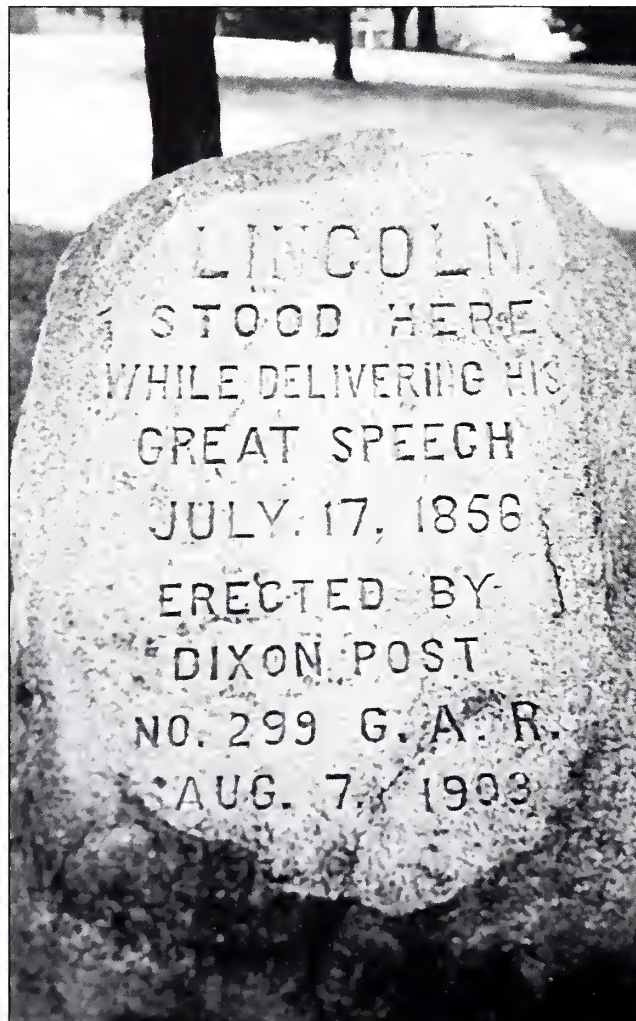 LINCOLN
STOOD HERE
WHILE DELIVERING HIS
GREAT SPEECH
JULY. 17, 1856
ERECTED BY
DIXON POST
NO. 299 G. A. R.
AUG. 7, 1903